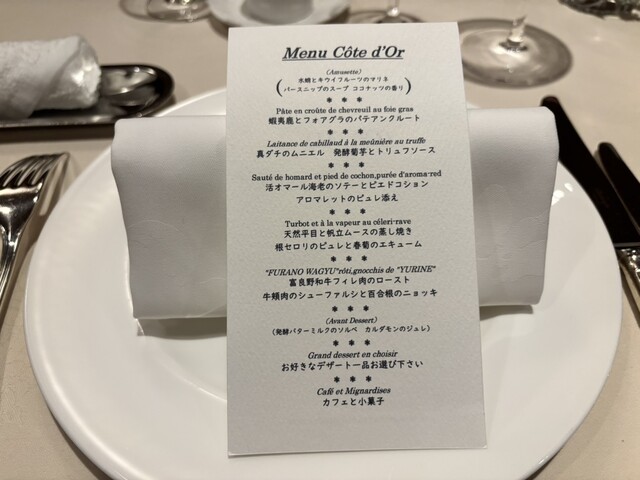 Menu Côte d'Or
(Amusette)
水蛸とキウイフルーツのマリネ
パースニップのスープ ココナッツの香り
* * *
Pâte en croûte de chevreuil au foie gras
蝦夷鹿とフォアグラのパテアンクルート
* * *
Laitance de cabillaud à la meûnière au truffe
真ダチのムニエル 発酵菊芋とトリュフソース
* * *
Sauté de homard et pied de cochon,purée d'aroma-red
活オマール海老のソテーとピエドコション
アロマレットのピュレ添え
* * *
Turbot et à la vapeur au céleri-rave
天然平目と帆立ムースの蒸し焼き
根セロリのピュレと春菊のエキューム
* * *
"FURANO WAGYU"rôti,gnocchis de "YURINE"
富良野和牛フィレ肉のロースト
牛頬肉のシューファルシと百合根のニョッキ
* * *
(Avant Dessert)
(発酵バターミルクのソルベ カルダモンのジュレ)
* * *
Grand dessert en choisir
お好きなデザート一品お選び下さい
* * *
Café et Mignardises
カフェと小菓子